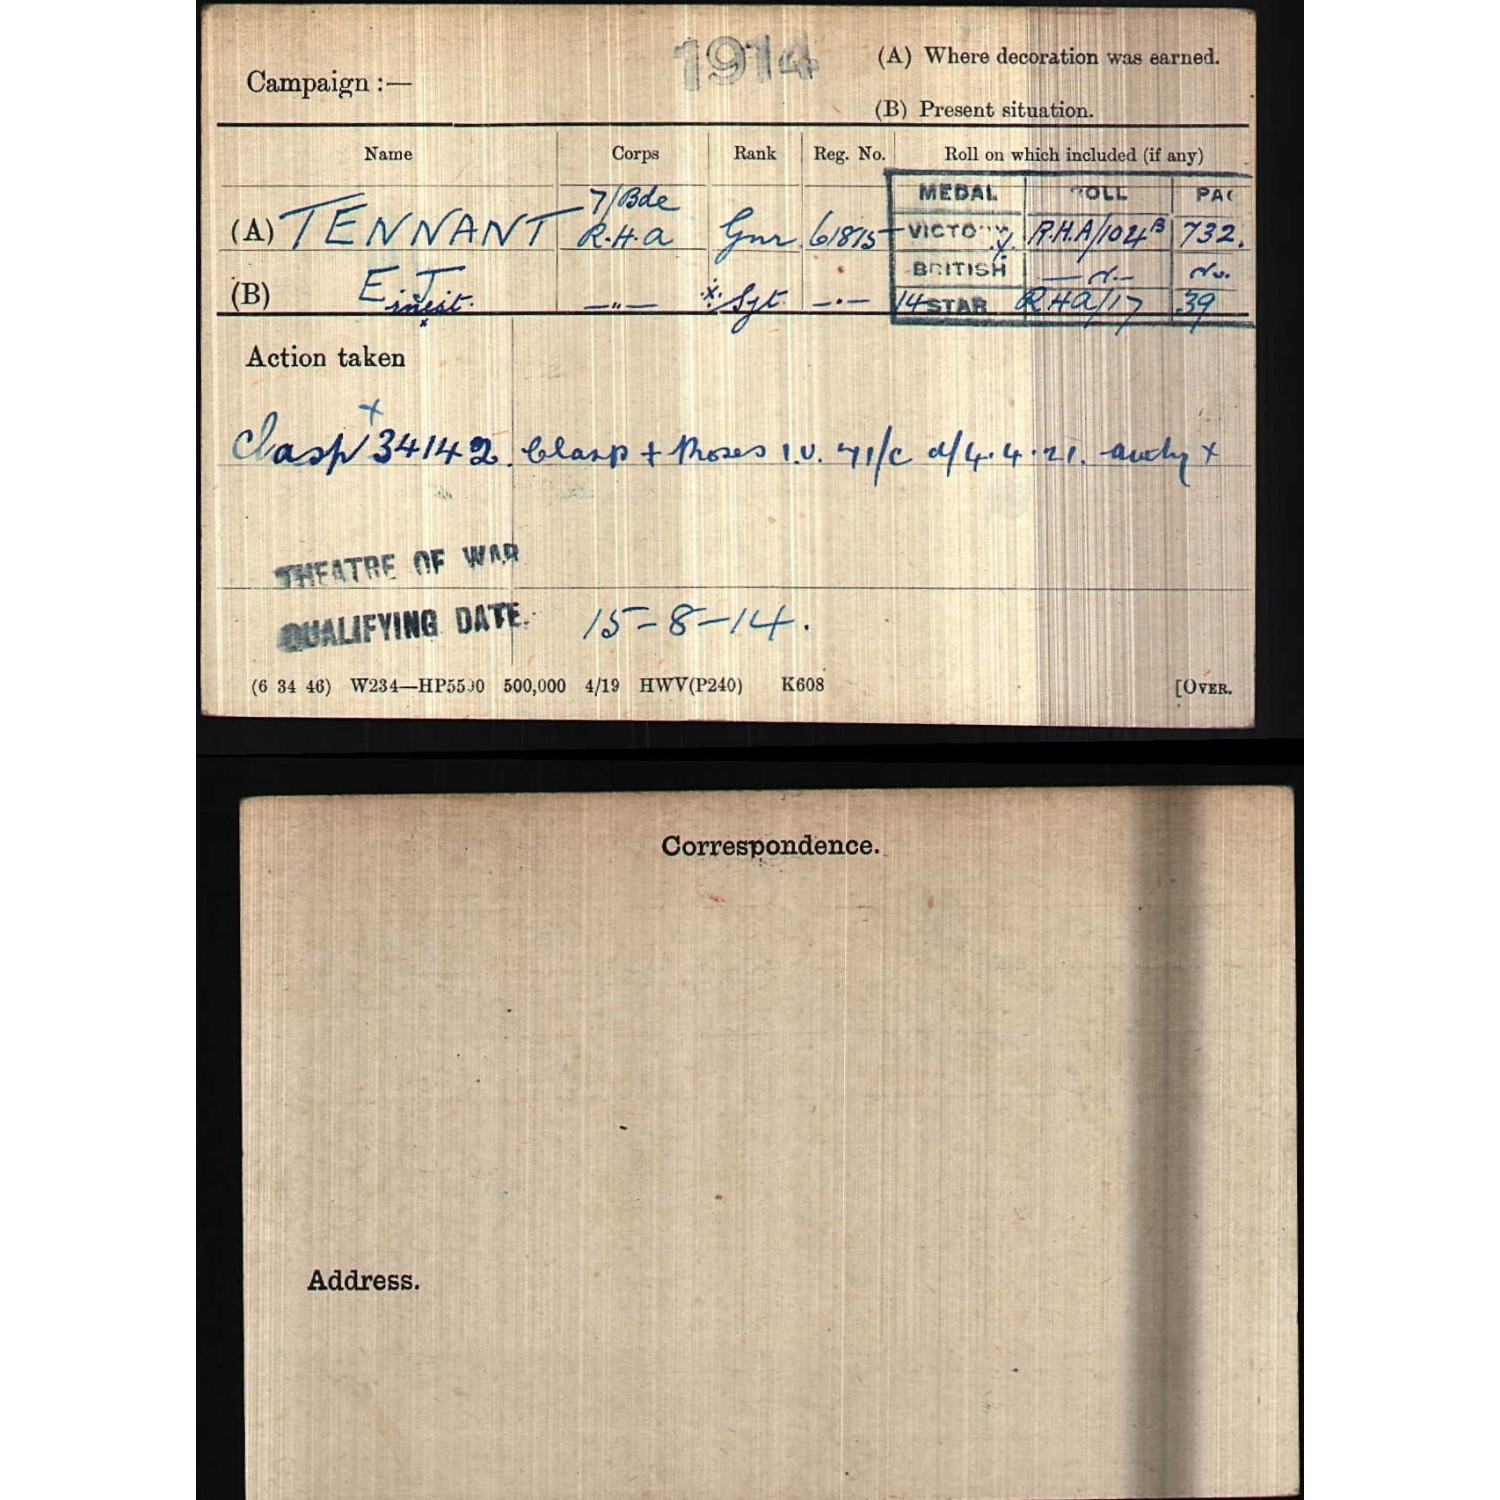 1914
(A) Where decoration was earned.
Campaign :—
(B) Present situation.
Name Corps Rank Reg. No. Roll on which included (if any)
MEDAL ROLL PAG
7/Bde
(A) TENNANT R.H.A Gnr 61875 VICTORY R.H.A/104B 732.
BRITISH — " — "
(B) E J — " — Sgt — " — 14 STAR RHA/17 39
Ernest.
Action taken
Clasp 34142. Clasp + Roses I.V. 71/c d/4.4.21. x
THEATRE OF WAR
QUALIFYING DATE. 15-8-14.
(6 34 46) W234—HP5590 500,000 4/19 HWV(P240) K608 [OVER.
Correspondence.
Address.